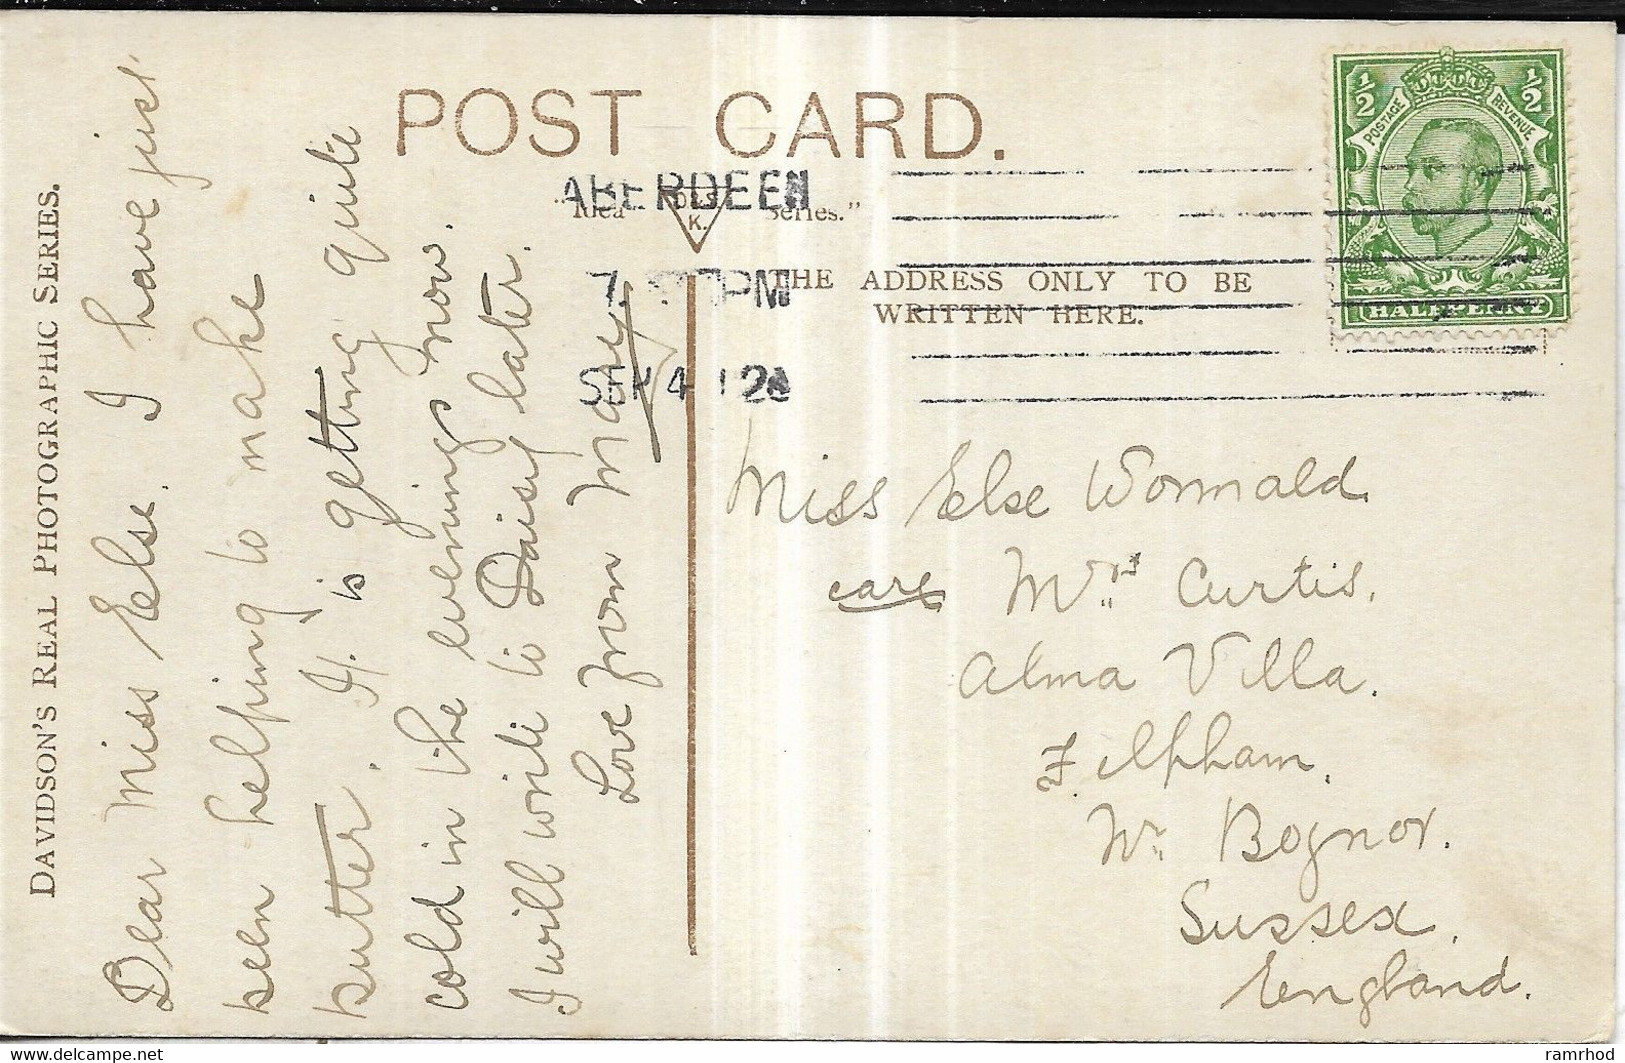 DAVIDSON'S REAL PHOTOGRAPHIC SERIES.
Dear Miss Else. I have just
been helping to make
butter. It is getting quite
cold in the evenings now.
I will write to Daisy later.
Love from May
POST CARD.
ABERDEEN
Series."
THE ADDRESS ONLY TO BE
WRITTEN HERE.
PM
SEP 4 12
½ POSTAGE REVENUE ½
HALFPENNY
Miss Else Wormald.
care Mrs Curtis.
Alma Villa.
Felpham.
Nr Bognor.
Sussex.
England.
delcampe.net
ramrhod